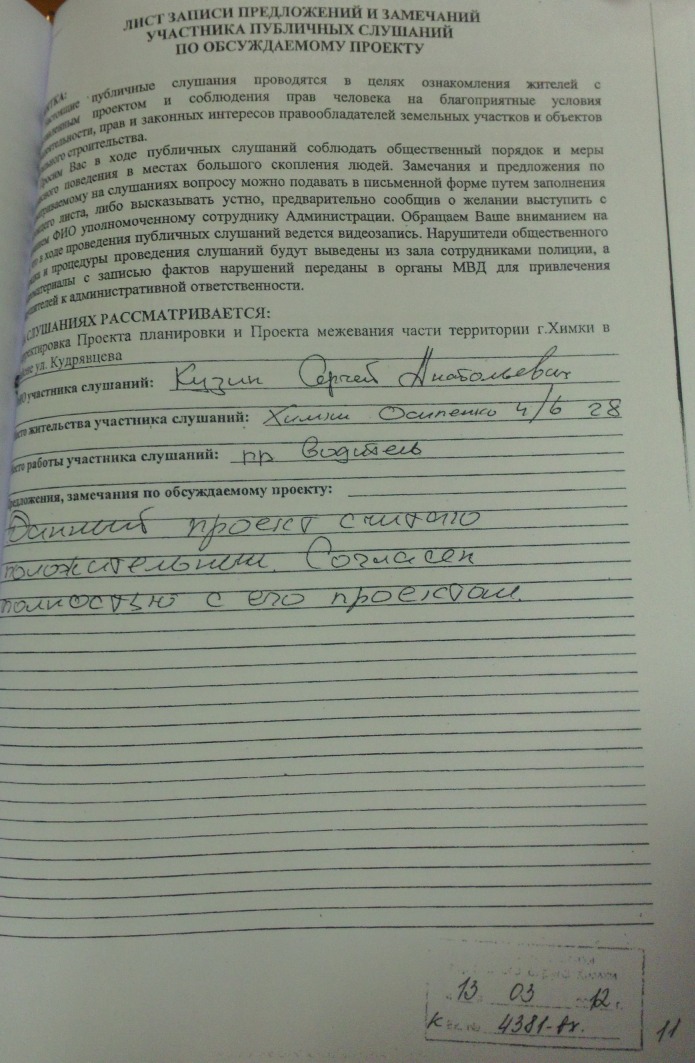 ЛИСТ ЗАПИСИ ПРЕДЛОЖЕНИЙ И ЗАМЕЧАНИЙ
УЧАСТНИКА ПУБЛИЧНЫХ СЛУШАНИЙ
ПО ОБСУЖДАЕМОМУ ПРОЕКТУ
публичные слушания проводятся в целях ознакомления жителей с
проектом и соблюдения прав человека на благоприятные условия
прав и законных интересов правообладателей земельных участков и объектов
строительства.
Вас в ходе публичных слушаний соблюдать общественный порядок и меры
поведения в местах большого скопления людей. Замечания и предложения по
на слушаниях вопросу можно подавать в письменной форме путем заполнения
листа, либо высказывать устно, предварительно сообщив о желании выступить с
ФИО уполномоченному сотруднику Администрации. Обращаем Ваше вниманием на
в ходе проведения публичных слушаний ведется видеозапись. Нарушители общественного
и процедуры проведения слушаний будут выведены из зала сотрудниками полиции, а
материалы с записью фактов нарушений переданы в органы МВД для привлечения
к административной ответственности.
СЛУШАНИЯХ РАССМАТРИВАЕТСЯ:
Проекта планировки и Проекта межевания части территории г.Химки в
ул. Кудрявцева
участника слушаний: Кузин Сергей Анатольевич
жительства участника слушаний: Химки Осипенко 4/6 28
работы участника слушаний: пр водитель
замечания по обсуждаемому проекту:
Данный проект считаю
положительным. Согласен
полностью с его проектам.
13 03 12 г.
4381-
11